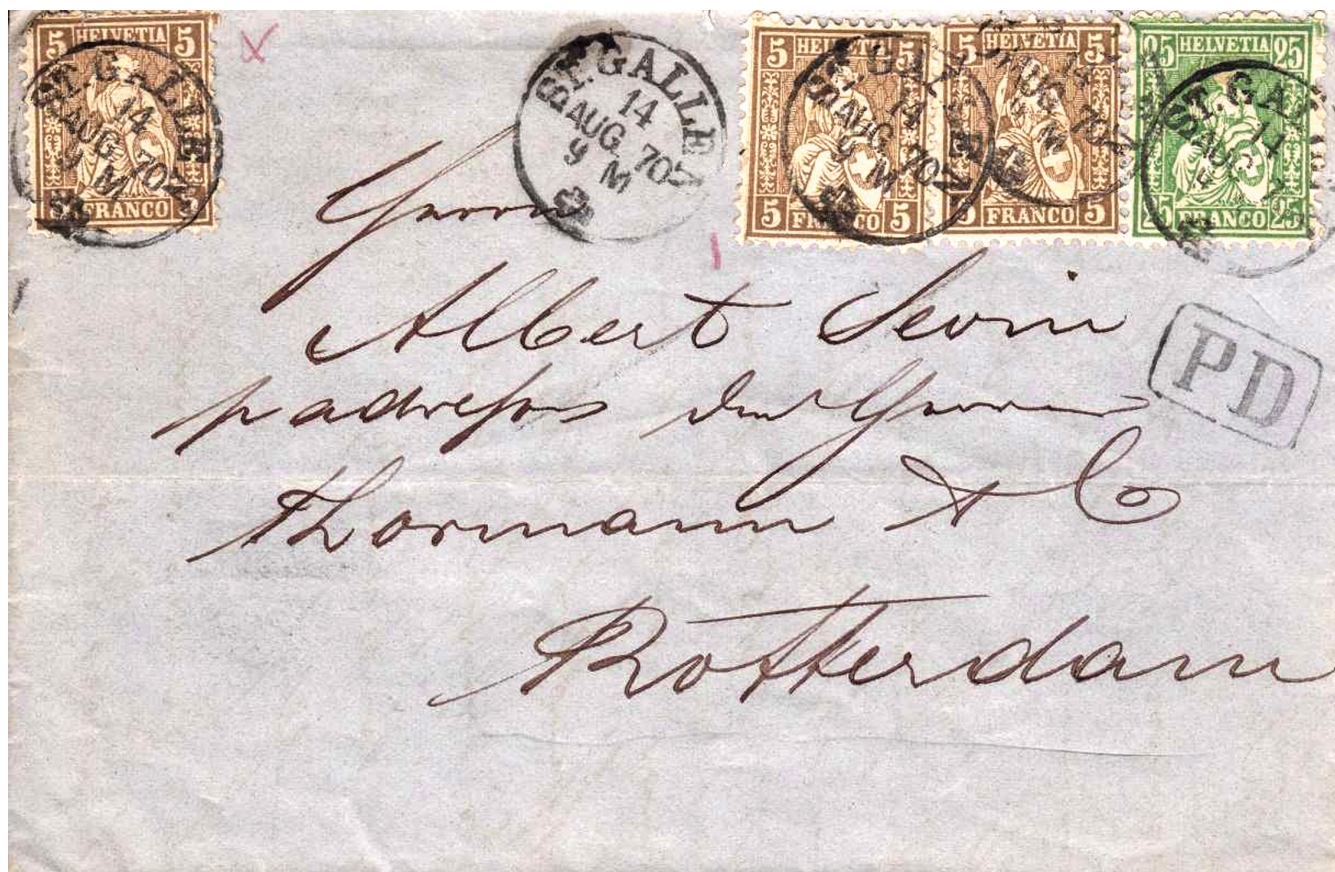 5 HELVETIA 5
5 FRANCO 5
ST. GALLEN
14
AUG. 70
9 M
ST. GALLEN
14
AUG. 70
9 M
5 HELVETIA 5
5 FRANCO 5
ST. GALLEN
14
AUG. 70
9 M
5 HELVETIA 5
5 FRANCO 5
14
AUG. 70
25 HELVETIA 25
25 FRANCO 25
ST. GALL
14
AUG.
PD
Herrn
Albert Sevin
p adresse der Herren
Thormann & Co
Rotterdam